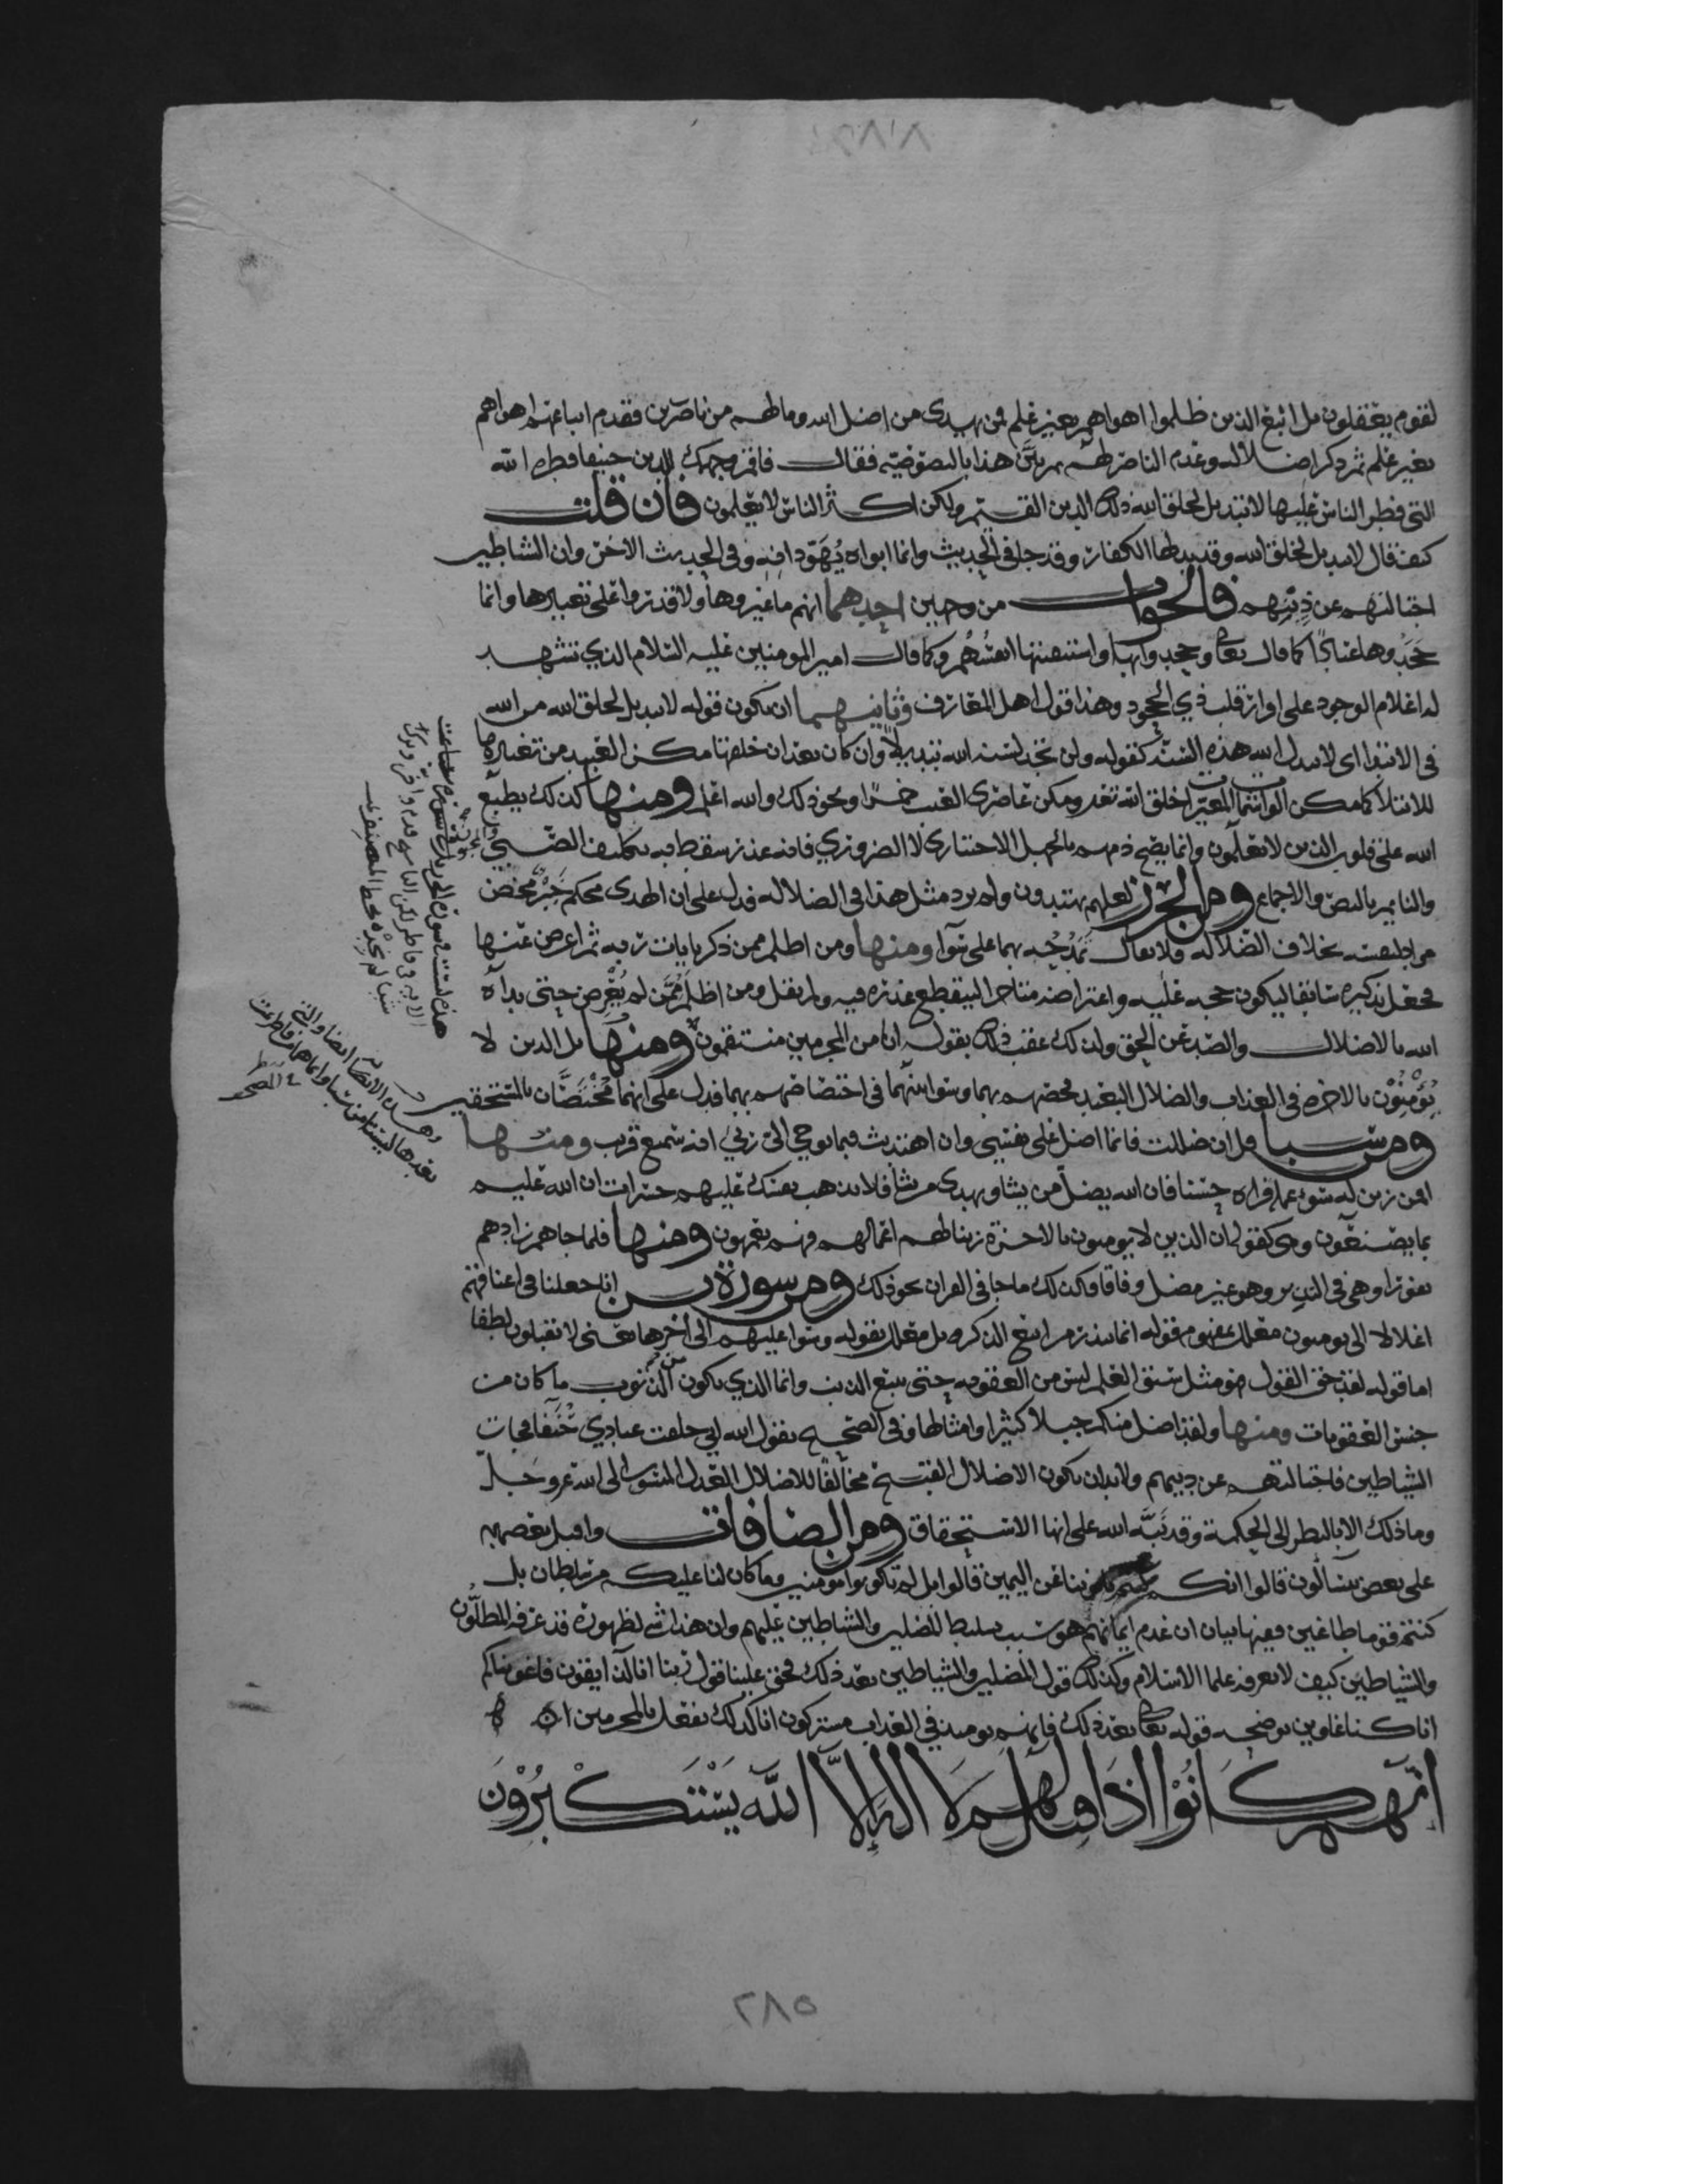 لقوم يعقلون بل اتبع الذين ظلموا اهواهم بغير علم فمن يهدى من اضل الله وما لهم من ناصرين فقدم اتباعهم اهواهم
بغير علم ثم ذكر اضلاله وعدم الناصر لهم ثم بين هذا بالنصوصيه فقال فاقم وجهك للدين حنيفا فطره الله
التي فطر الناس عليها لا تبديل لخلق الله ذلك الدين القيم ولكن اكثر الناس لا يعلمون فان قلت
كيف قال لا تبديل لخلق الله وقد بدلها الكفار وقد جا في الحديث وانما ابواه يهودانه وفي الحديث الاخر وان الشياطين
اجتالتهم عن دينهم فالجواب من وجهين احدهما انهم ما غيروها ولا قدروا على تغييرها وانما
جحدوها عنادًا كما قال تعالى وجحدوا بها واستيقنتها انفسهم وكما قال امير المومنين عليه السلام الذي تشهد
له اعلام الوجود على اقرار قلب ذي الجحود وهذا قول اهل المعارف وثانيهما ان يكون قوله لا تبديل لخلق الله من الله
في الابتدا اي لا يبدل الله هذه السنة كقوله ولن تجد لسنت الله تبديلا وان كان بعد ان خلقها مكن العبيد من تغييرها
للابتلا كما مكن الواشمات المغيرات خلق الله تعالى ومكن عاصري العنب خمرًا ونحو ذلك والله اعلم ومنها كذلك يطبع
الله على قلوب الذين لا يعلمون وانما يصح ذمهم بالجهل الاختياري لا الضروري فانه عذر سقط به تكليف الصبي
والنايم بالنص والاجماع ومن الجرز لعلهم يهتدون ولم يرد مثل هذا في الضلاله فدل على ان الهدى محكم خير محض
مراد لنفسه بخلاف الضلاله فلا يقال تمدحه بهما على سوآ ومنها ومن اظلم ممن ذكر بايات ربه ثم اعرض عنها
فجعل تذكيره سابقا ليكون حجه عليه واعتراضه متاخرا لينقطع عذره فيه ولم يقل ومن اظلم ممن لم يعرض حتى بداه
الله بالاضلال والصد عن الحق ولذلك عقب ذلك بقوله انا من المجرمين منتقمون ومنها بل الذين لا
يؤمنون بالاخره في العذاب والضلال البعيد فخصهم بهما وسوا بينهما في اختصاصهم بهما فدل على انهما مختصان بالمستحقين
ومن سبا قل ان ضللت فانما اضل على نفسي وان اهتديت فبما يوحي الي ربي انه سميع قريب ومنها
افمن زين له سوء عمله فراه حسنا فان الله يضل من يشا ويهدى من يشا فلا تذهب نفسك عليهم حسرات ان الله عليم
بما يصنعون وهي كقوله ان الذين لا يومنون بالاخرة زينا لهم اعمالهم فهم يعمهون ومنها فلما جاهم زادهم
نفورا وهي في النذير وهو غير مضل وفاقا فكذلك ما جا في القران نحو ذلك ومن سورة يس انا جعلنا في اعناقهم
اغلالا الى يومنون معلل بمفهوم قوله انما تنذر من اتبع الذكر بل معلل بقوله وسوا عليهم الى اخرها يعني لا يقبلون لطفا
اما قوله لقد حق القول فهو مثل سبق العلم ليس من العقوبه حتى يتبع الذنب وانما الذي يكون من الذنوب ما كان من
جنس العقوبات ومنها ولقد اضل منكم جبلا كثيرا وامثالها وفي الصحيح يقول الله اني خلقت عبادي حنفا فجات
الشياطين فاجتالتهم عن دينهم ولا بد ان يكون الاضلال القبيح مخالفا للاضلال العدل المنسوب الى الله عز وجل
وما ذلك الا بالنظر الى الحكمة وقد نبه الله على انها الاستحقاق ومن الصافات واقبل بعضهم
على بعض يتسآلون قالوا انكم كنتم تاتوننا عن اليمين قالوا بل لم تكونوا مومنين وما كان لنا عليكم من سلطان بل
كنتم قوما طاغين ففيها بيان ان عدم ايمانهم هو سبب تسليط المضلين والشياطين عليهم وان هذا شي لظهوره قد عرفه المضلون
والشياطين كيف لا يعرفه علما الاسلام وكذلك قول المضلين والشياطين بعد ذلك فحق علينا قول ربنا انا لذايقون فاغويناكم
انا كنا غاوين يوضحه قوله تعالى بعد ذلك فانهم يوميذ في العذاب مشتركون انا كذلك نفعل بالمجرمين
انهم كانوا اذا قيل لهم لا اله الا الله يستكبرون
٢٨٥